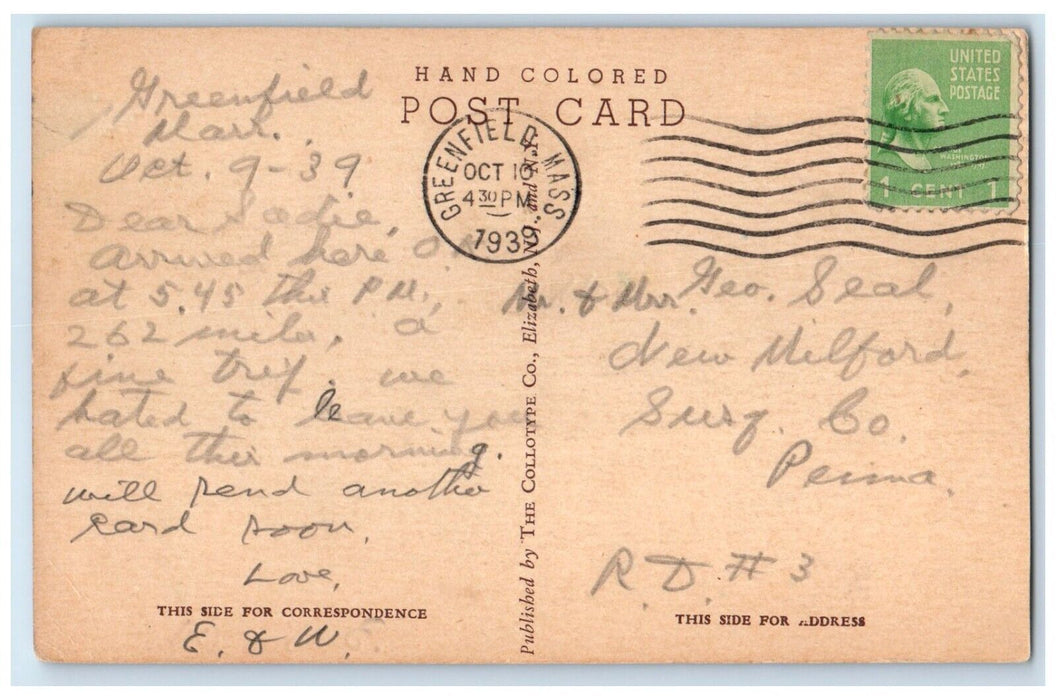 HAND COLORED
POST CARD
UNITED
STATES
POSTAGE
WASHINGTON
1 CENT 1
GREENFIELD MASS
OCT 10
4 30 PM
1939
Greenfield
Mass.
Oct. 9-39
Dear Sadie,
Arrived here O.K.
at 5.45 this P.M.,
262 mile, a
fine trip. we
hated to leave you
all this morning.
will send another
card soon.
Love,
E. & W.
THIS SIDE FOR CORRESPONDENCE
Published by THE COLLOTYPE CO., Elizabeth, N.J., and N.Y.
Mr. & Mrs. Geo. Seal,
New Milford,
Susq. Co.
Penna.
R.D. #3
THIS SIDE FOR ADDRESS